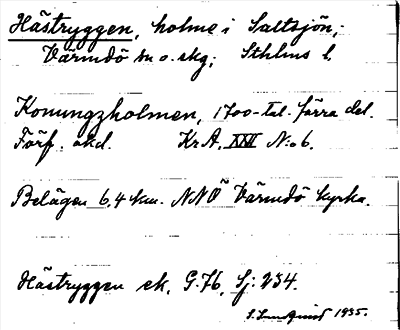 Hästryggen, holme i Saltsjön,
Värmdö sn o. skg; Sthlms l.
Konungzholmen, 1700-tal. förra del.
Förf. okd. Kr.A. XXII N:o 6.
Belägen 6,4 km. NNO Värmdö kyrka.
Hästryggen ek. G. 76, Sj: 234.
1935.